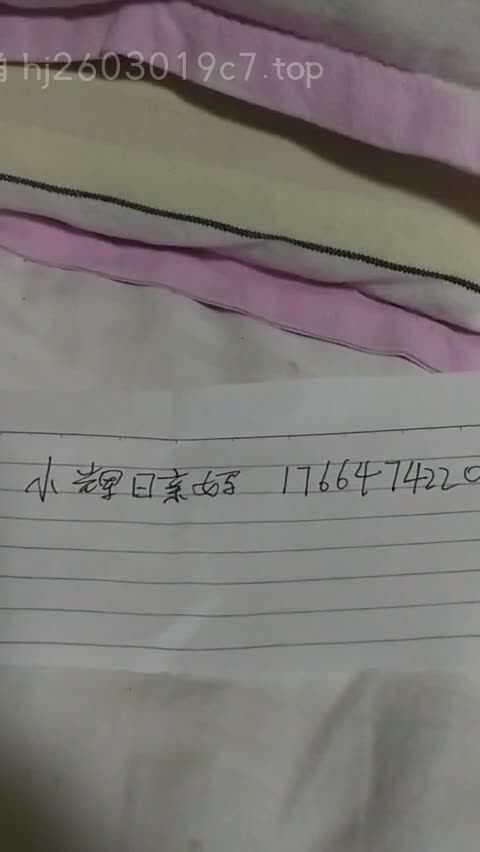 hj2603019c7.top
小辉日亲妈 1766474220